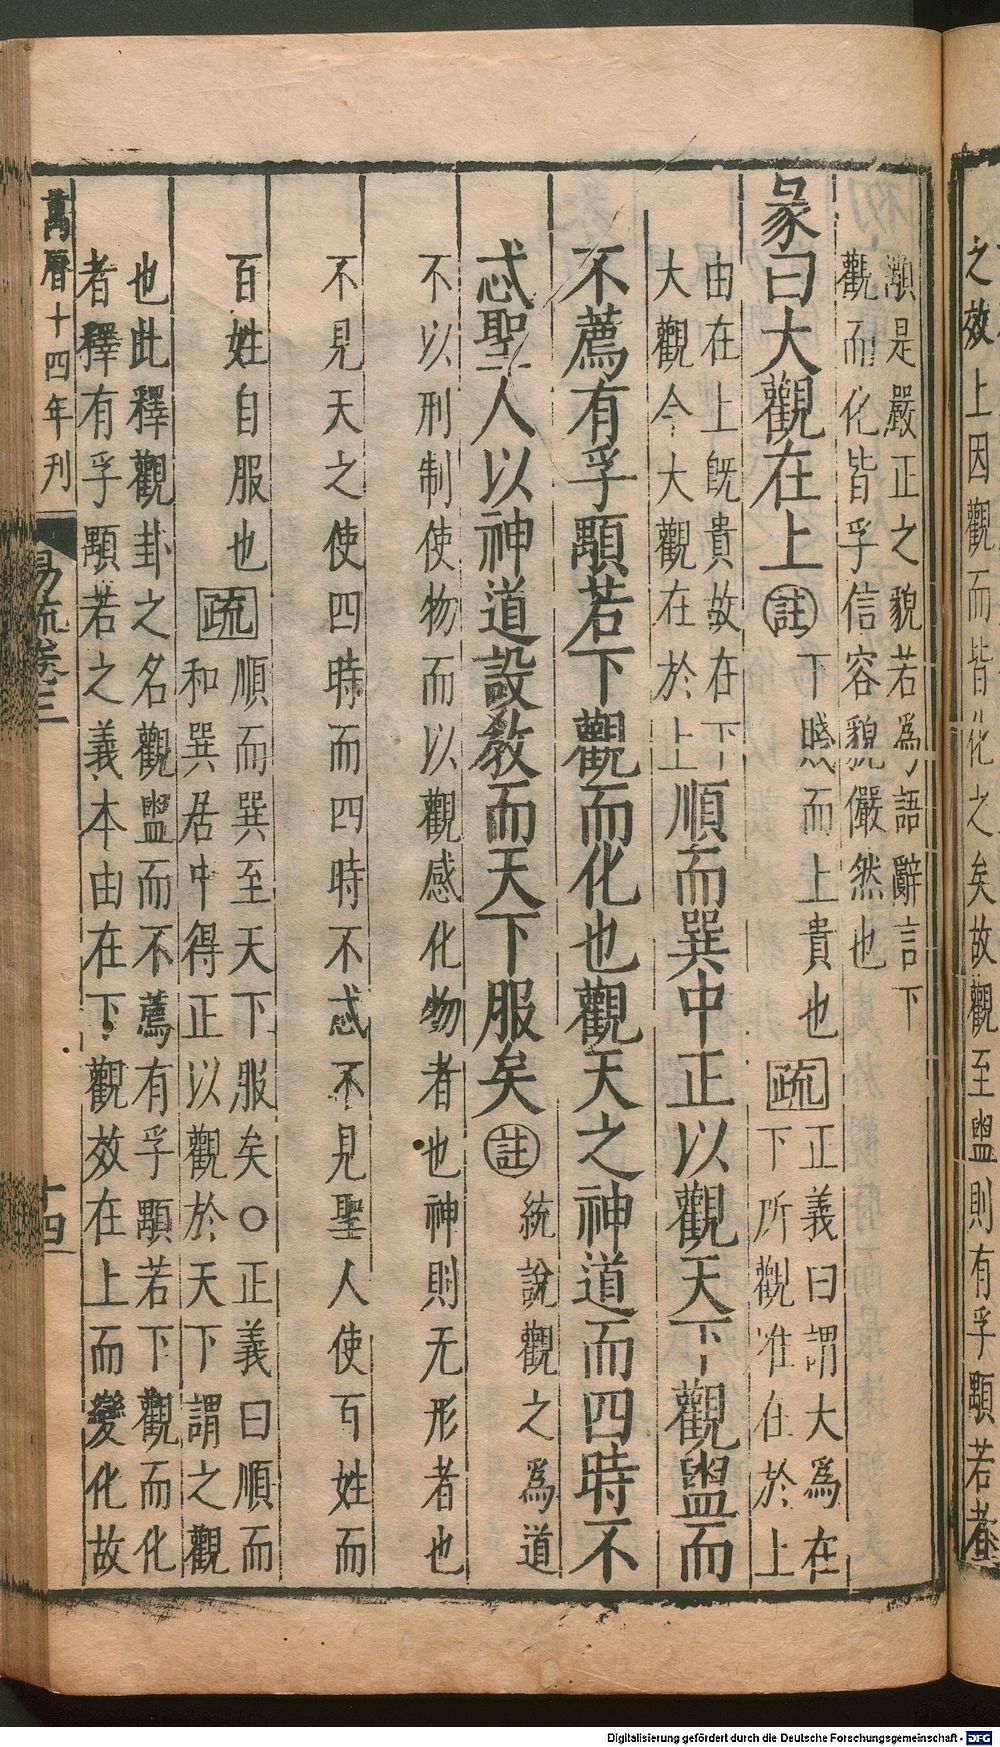 之效上因觀而皆化之矣故觀至盥則有孚顒若者
顒是嚴正之貌若為語辭言下
觀而化皆孚信容貌儼然也
彖曰大觀在上註下賤而上貴也疏正義曰謂大為在
下所觀唯在於上
由在上既貴故在下
大觀今大觀在於上順而巽中正以觀天下觀盥而
不薦有孚顒若下觀而化也觀天之神道而四時不
忒聖人以神道設教而天下服矣註統說觀之為道
不以刑制使物而以觀感化物者也神則无形者也
不見天之使四時而四時不忒不見聖人使百姓而
百姓自服也疏順而巽至天下服矣○正義曰順而
和巽居中得正以觀於天下謂之觀
也此釋觀卦之名觀盥而不薦有孚顒若下觀而化
者釋有孚顒若之義本由在下觀效在上而變化故
萬曆十四年刊 易疏卷三 十四
Digitalisierung gefördert durch die Deutsche Forschungsgemeinschaft - DFG